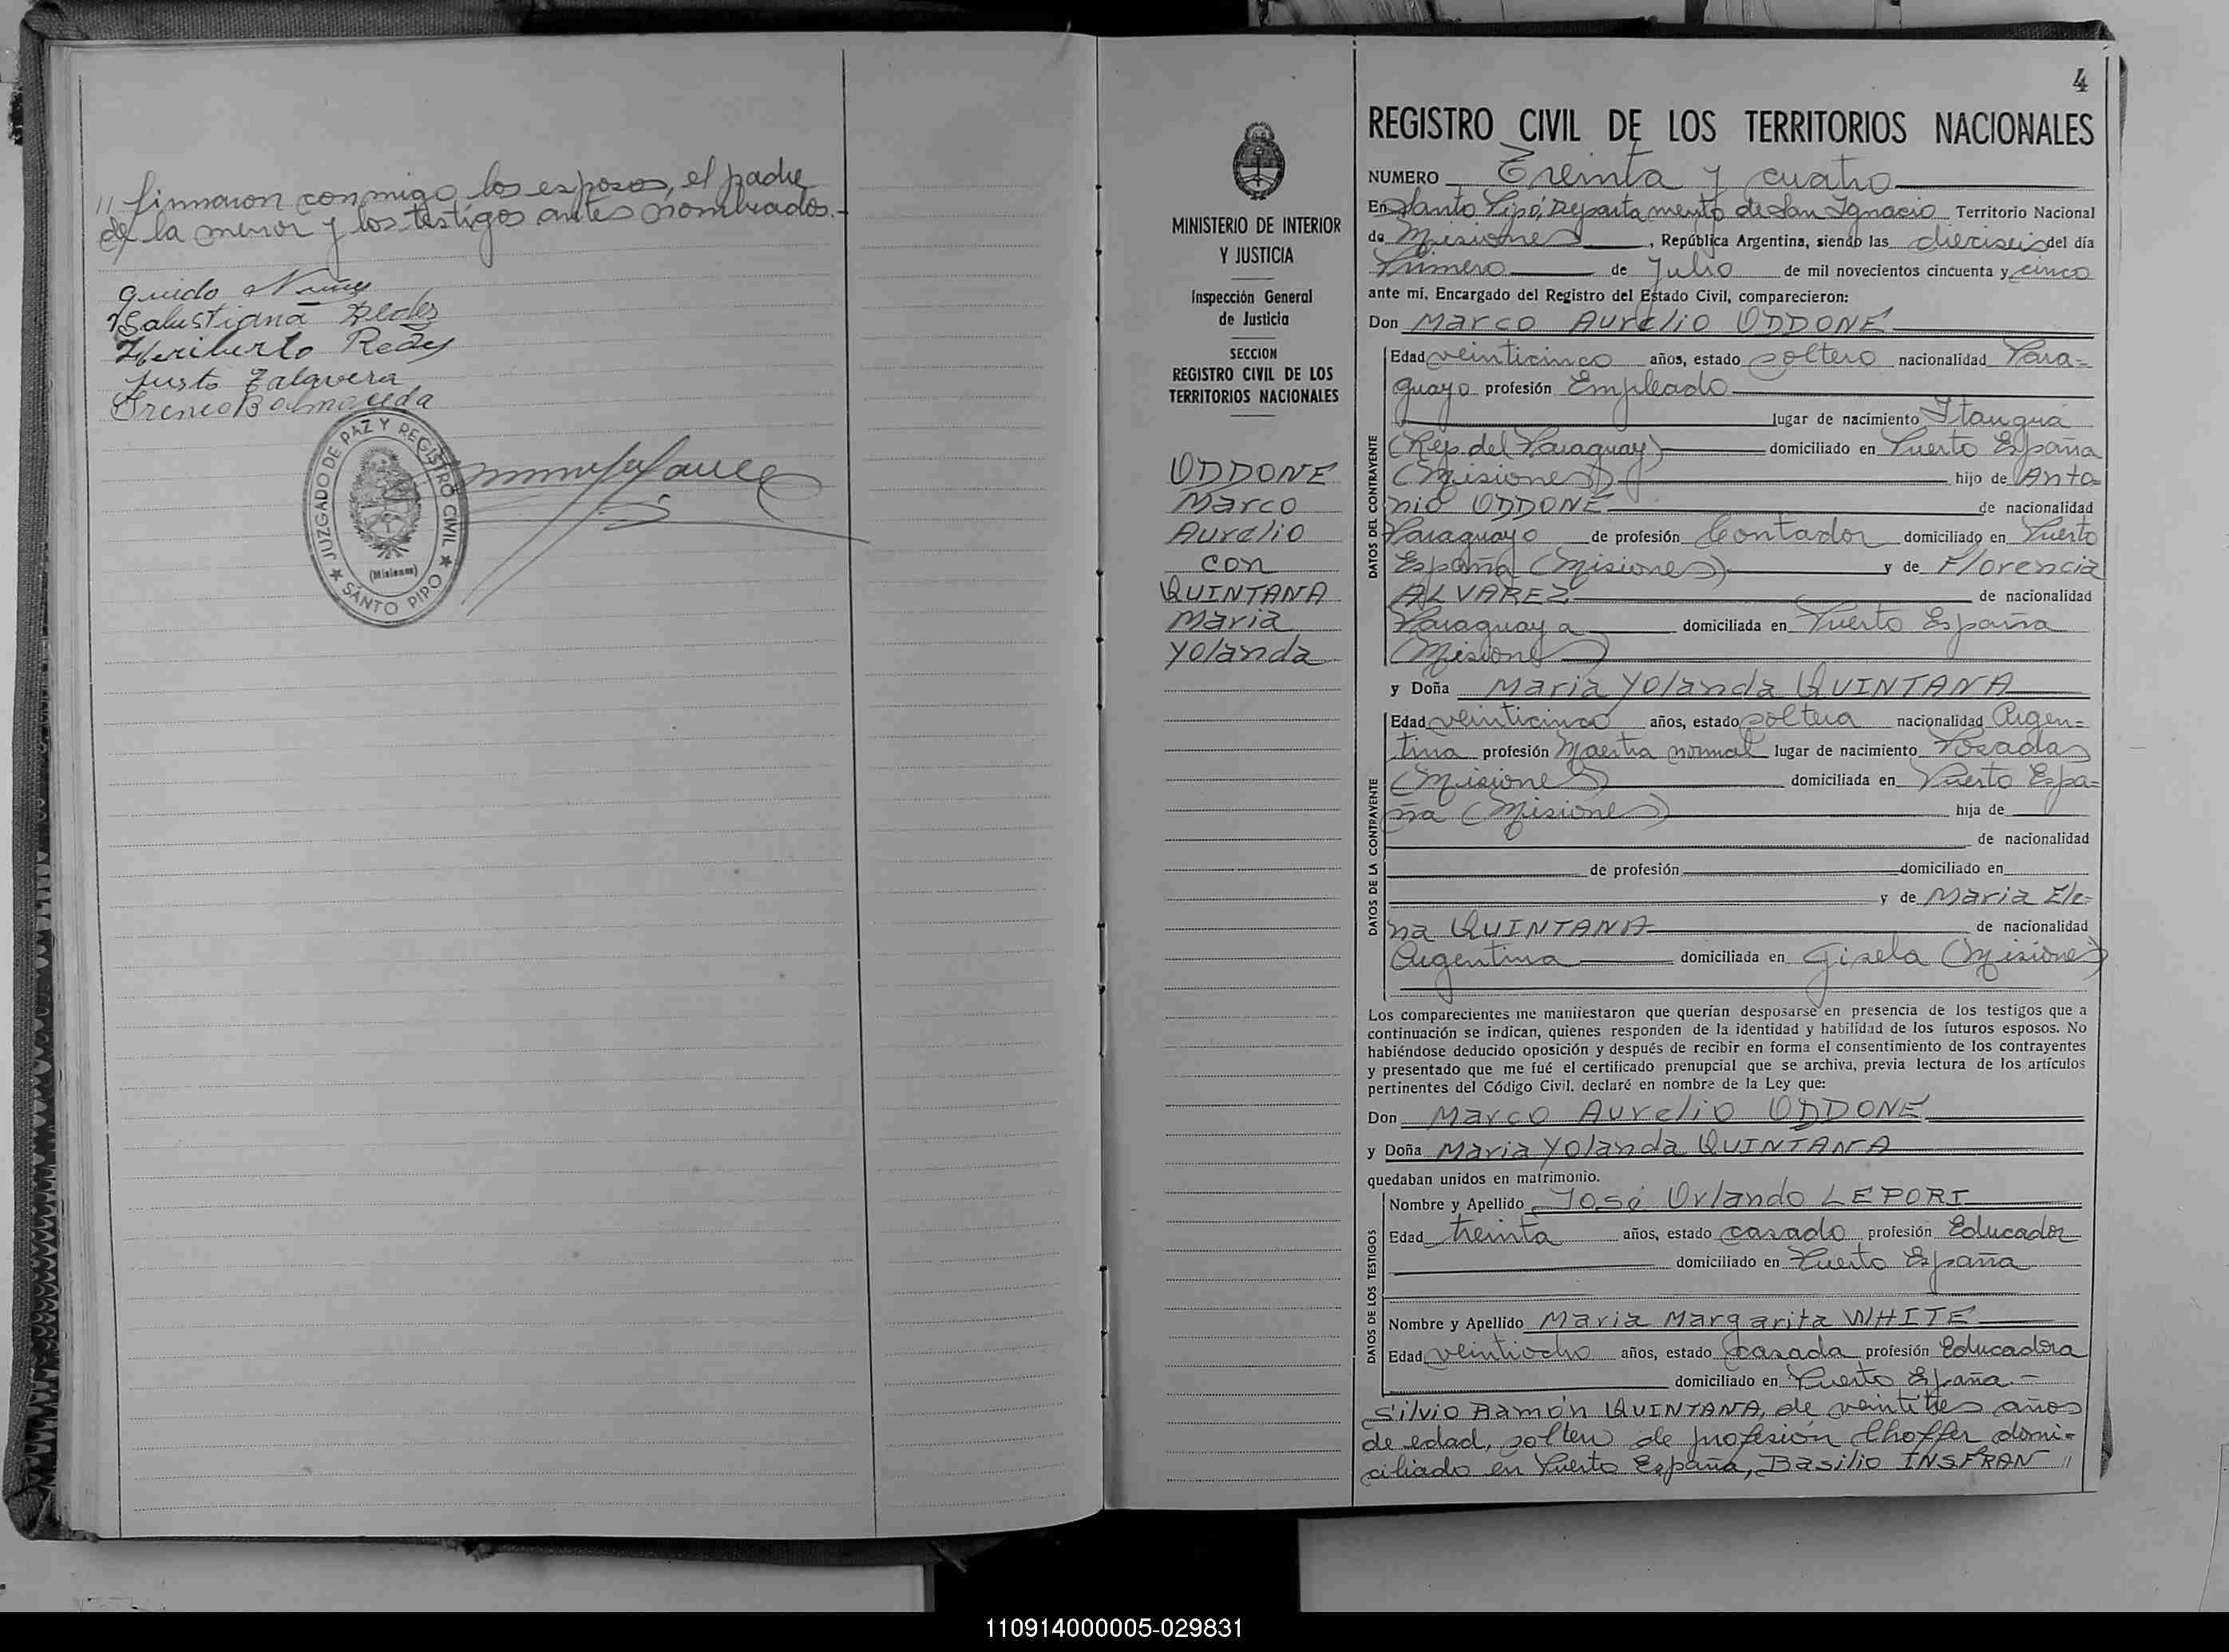 // firmaron conmigo los esposos, el padre
de la menor y los testigos antes nombrados.-
Guido Nuñez
Salustiana Redes
Heriberto Redes
Justo Talavera
Ireneo Balmaceda
JUZGADO DE PAZ Y REGISTRO CIVIL
(Misiones)
★ SANTO PIPO ★
MINISTERIO DE INTERIOR
Y JUSTICIA
Inspección General
de Justicia
SECCION
REGISTRO CIVIL DE LOS
TERRITORIOS NACIONALES
ODDONE
Marco
Aurelio
con
QUINTANA
Maria
Yolanda
4
REGISTRO CIVIL DE LOS TERRITORIOS NACIONALES
NUMERO Treinta y cuatro
En Santo Pipó, Departamento de San Ignacio Territorio Nacional
de Misiones, República Argentina, siendo las dieciseis del día
Primero de Julio de mil novecientos cincuenta y cinco
ante mí, Encargado del Registro del Estado Civil, comparecieron:
Don Marco Aurelio ODDONE
DATOS DEL CONTRAYENTE
Edad veinticinco años, estado soltero nacionalidad Para=
guayo profesión Empleado
lugar de nacimiento Itauguá
(Rep. del Paraguay) domiciliado en Puerto España
(Misiones) hijo de Anto=
nio ODDONE de nacionalidad
Paraguayo de profesión Contador domiciliado en Puerto
España (Misiones) y de Florencia
ALVAREZ de nacionalidad
Paraguaya domiciliada en Puerto España
(Misiones)
y Doña Maria Yolanda QUINTANA
DATOS DE LA CONTRAYENTE
Edad veinticinco años, estado soltera nacionalidad Argen=
tina profesión Maestra normal lugar de nacimiento Posadas
(Misiones) domiciliada en Puerto Espa=
ña (Misiones) hija de
de nacionalidad
de profesión domiciliado en
y de Maria Ele=
na QUINTANA de nacionalidad
Argentina domiciliada en Gisela (Misiones)
Los comparecientes me manifestaron que querían desposarse en presencia de los testigos que a
continuación se indican, quienes responden de la identidad y habilidad de los futuros esposos. No
habiéndose deducido oposición y después de recibir en forma el consentimiento de los contrayentes
y presentado que me fué el certificado prenupcial que se archiva, previa lectura de los artículos
pertinentes del Código Civil, declaré en nombre de la Ley que:
Don Marco Aurelio ODDONE
y Doña Maria Yolanda QUINTANA
quedaban unidos en matrimonio.
DATOS DE LOS TESTIGOS
Nombre y Apellido José Orlando LEPORI
Edad treinta años, estado casado profesión Educador
domiciliado en Puerto España
Nombre y Apellido Maria Margarita WHITE
Edad veintiocho años, estado casada profesión Educadora
domiciliado en Puerto España.-
Silvio Ramón QUINTANA, de veintitres años
de edad, soltero de profesión Choffer domi=
ciliado en Puerto España, Basilio INSFRAN //
110914000005-029831